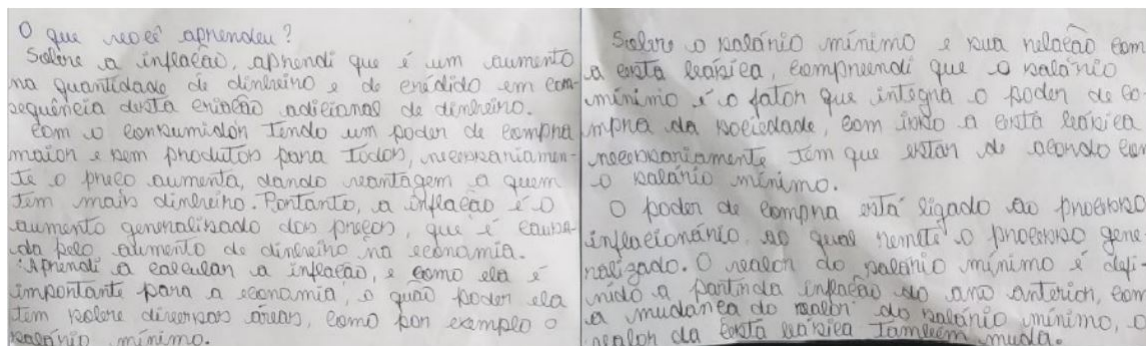 O que você aprendeu?
Sobre a inflação, aprendi que é um aumento
na quantidade de dinheiro e de crédido em con-
sequência desta criação adicional de dinheiro.
Com o consumidor tendo um poder de compra
maior e sem produtos para todos, necessariamen-
te o preço aumenta, dando vantagem a quem
tem mais dinheiro. Portanto, a inflação é o
aumento generalizado dos preços, que é causa-
da pelo aumento de dinheiro na economia.
Aprendi a calcular a inflação, e como ela é
importante para a economia, o quão poder ela
tem sobre diversas áreas, como por exemplo o
salário mínimo.
Sobre o salário mínimo e sua relação com
a cesta básica, compreendi que o salário
mínimo é o fator que integra o poder de co-
mpra da sociedade, com isso a cesta básica
necessariamente tem que estar de acordo com
o salário mínimo.
O poder de compra está ligado ao processo
inflacionário, ao qual remete o processo gene-
ralizado. O valor do salário mínimo é defi-
nido a partir da inflação do ano anterior, com
a mudança do valor do salário mínimo, o
valor da cesta básica também muda.